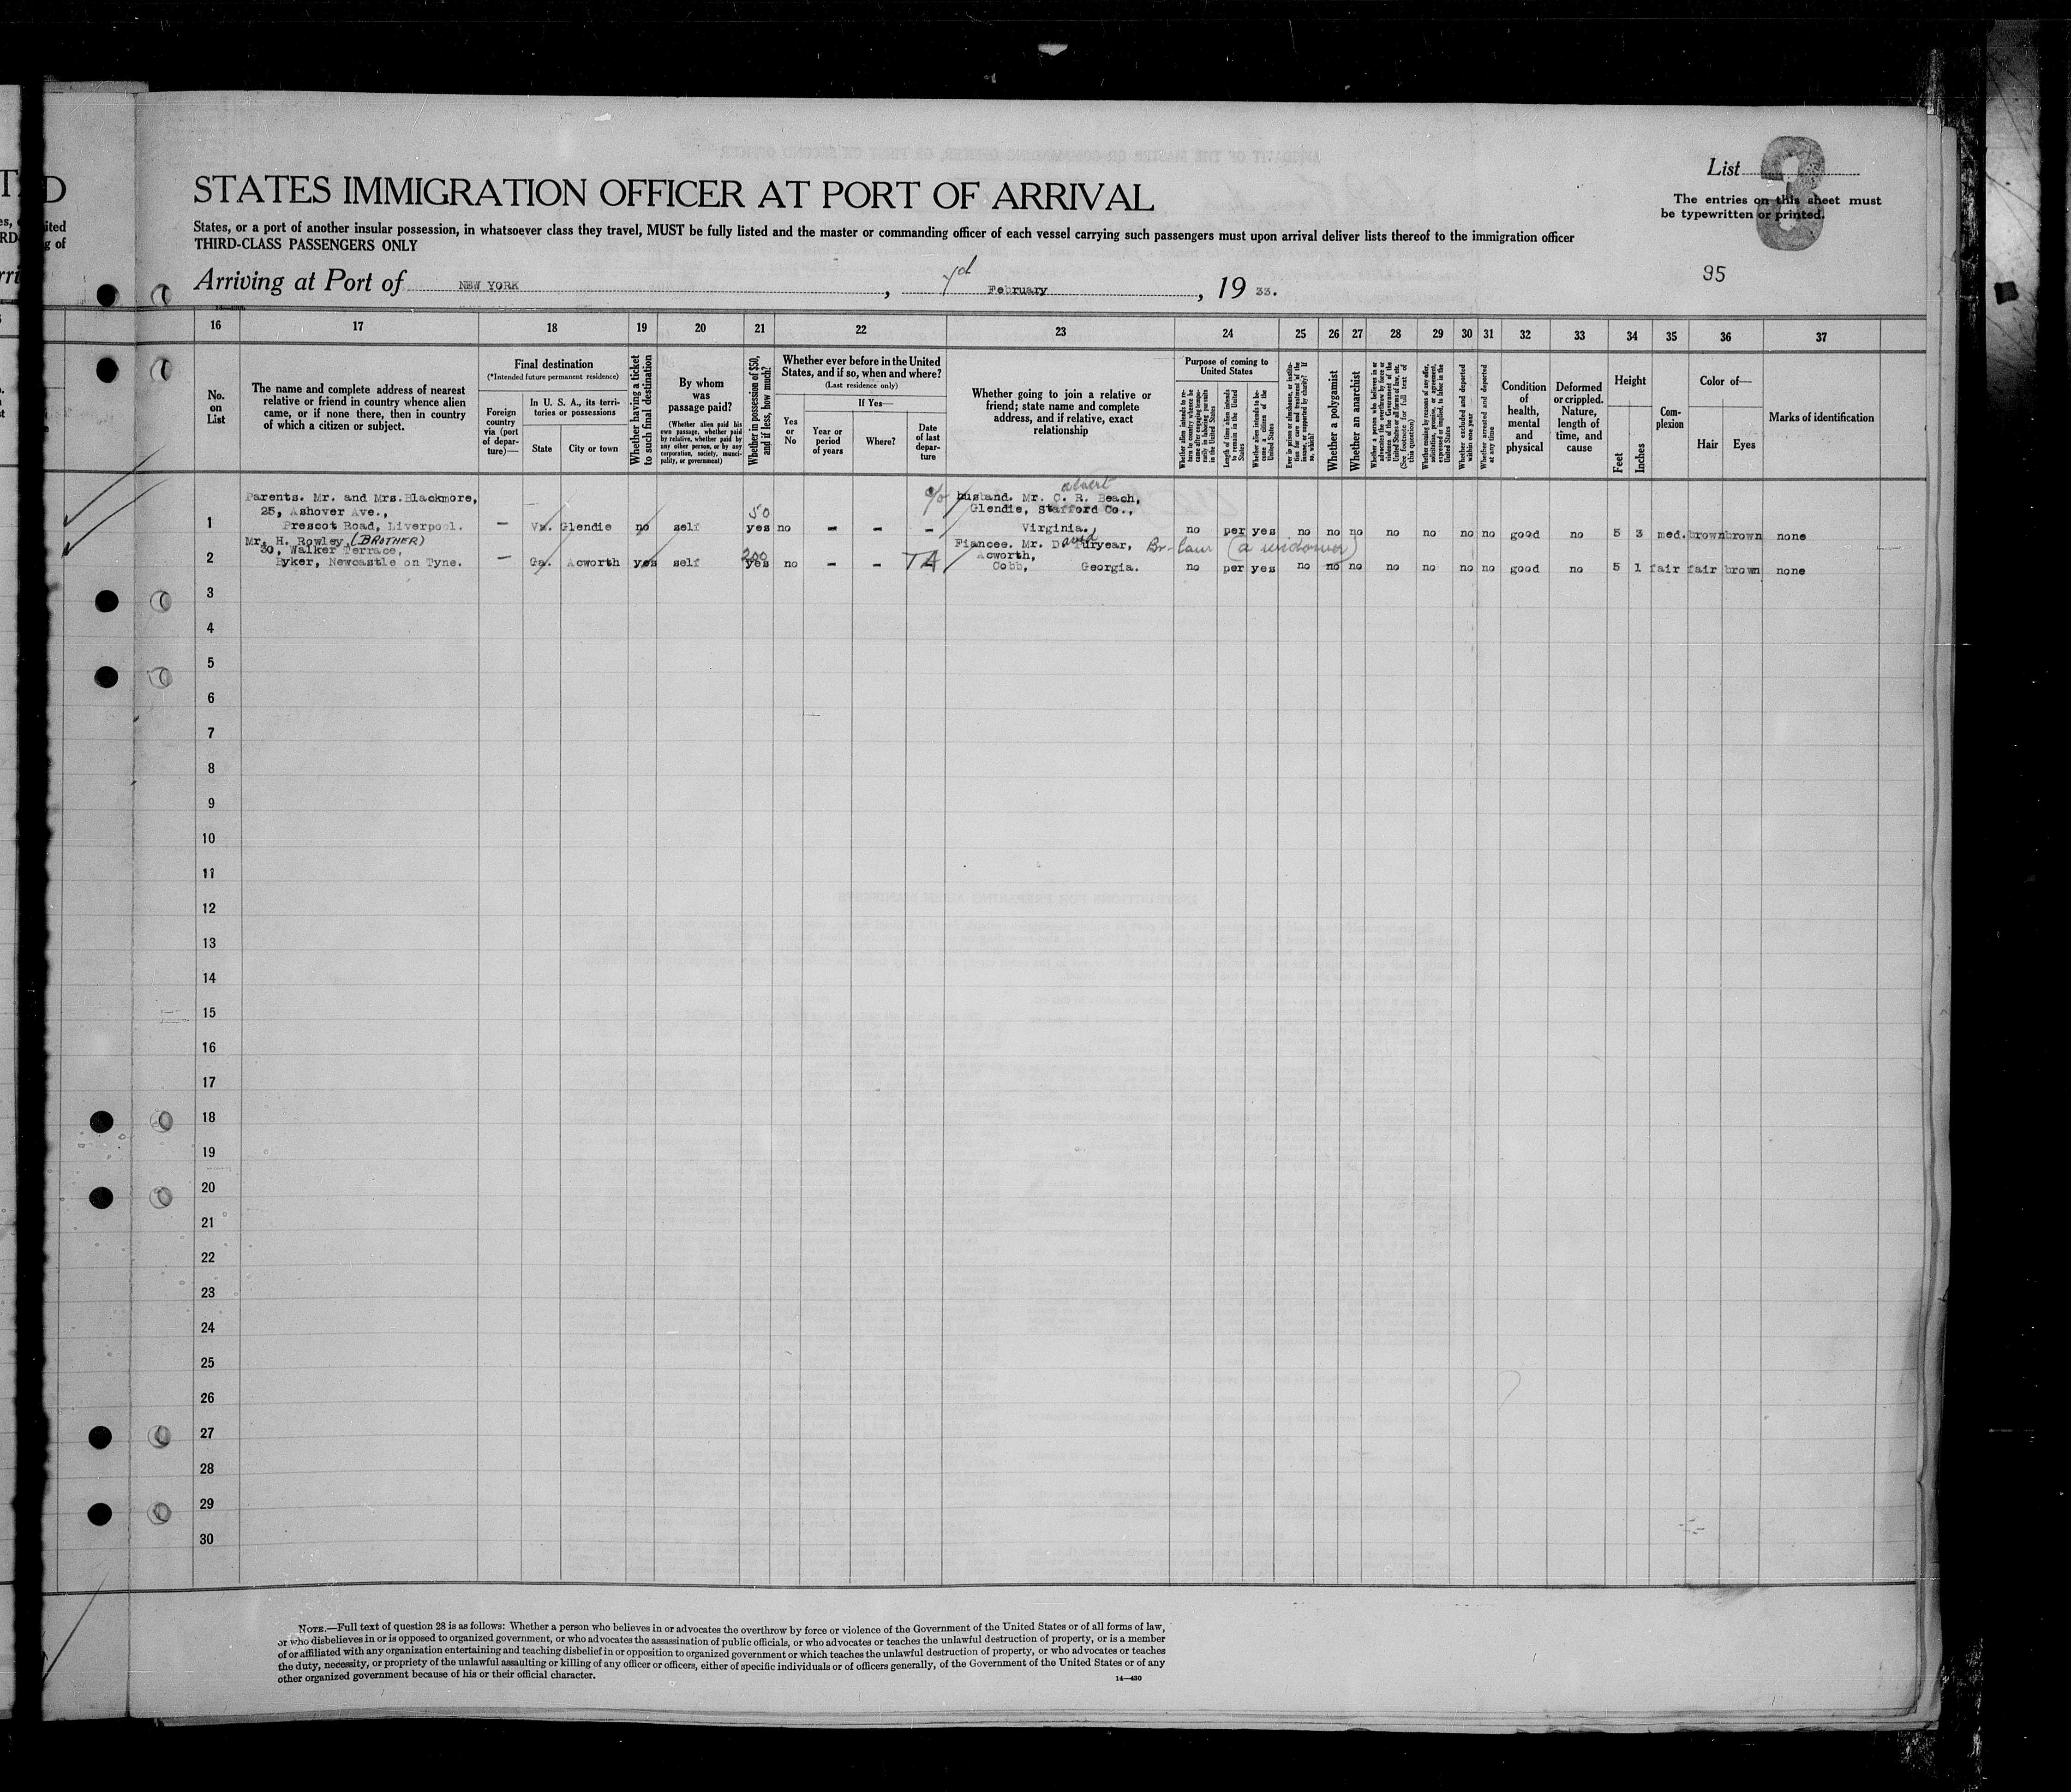 TED
List 3
STATES IMMIGRATION OFFICER AT PORT OF ARRIVAL
The entries on this sheet must
be typewritten or printed.
States, or a port of another insular possession, in whatsoever class they travel, MUST be fully listed and the master or commanding officer of each vessel carrying such passengers must upon arrival deliver lists thereof to the immigration officer
THIRD-CLASS PASSENGERS ONLY
95
Arriving at Port of NEW YORK, February, 19 33.
16 17 18 19 20 21 22 23 24 25 26 27 28 29 30 31 32 33 34 35 36 37
No.
on
List
The name and complete address of nearest
relative or friend in country whence alien
came, or if none there, then in country
of which a citizen or subject.
Final destination
(*Intended future permanent residence)
Foreign
country
via (port
of depar-
ture)—
In U. S. A., its terri-
tories or possessions
State
City or town
Whether having a ticket
to such final destination
By whom
was
passage paid?
(Whether alien paid his
own passage, whether paid
by relative, whether paid by
any other person, or by any
corporation, society, munici-
pality, or government)
Whether in possession of $50,
and if less, how much?
Whether ever before in the United
States, and if so, when and where?
(Last residence only)
Yes
or
No
If Yes—
Year or
period
of years
Where?
Date
of last
depar-
ture
Whether going to join a relative or
friend; state name and complete
address, and if relative, exact
relationship
Purpose of coming to
United States
Whether alien intends to re-
turn to country whence he
came after engaging tempo-
rarily in laboring pursuits
in the United States
Length of time alien intends
to remain in the United
States
Whether alien intends to be-
come a citizen of the
United States
Ever in prison or almshouse, or institu-
tion for care and treatment of the
insane, or supported by charity? If
so, which?
Whether a polygamist
Whether an anarchist
Whether a person who believes in or
advocates the overthrow by force or
violence of the Government of the
United States or all forms of law, etc.
(See footnote for full text of
this question)
Whether coming by reasons of any offer,
solicitation, promise, or agreement,
expressed or implied, to labor in the
United States
Whether excluded and deported
within one year
Whether arrested and deported
at any time
Condition
of
health,
mental
and
physical
Deformed
or crippled.
Nature,
length of
time, and
cause
Height
Feet
Inches
Com-
plexion
Color of—
Hair
Eyes
Marks of identification
Parents. Mr. and Mrs. Blackmore,
25, Ashover Ave.,
1 Prescot Road, Liverpool. — Va. Glendie no self 50 yes no - - - c/o husband. Mr. C. R. Beach, albert
Glendie, Stafford Co.,
Virginia. no per yes no no no no no no no good no 5 3 med. brown brown none
Mr. H. Rowley, (BROTHER)
30, Walker Terrace,
2 Byker, Newcastle on Tyne. — Ga. Acworth yes self 200 yes no - - Fiancee. Mr. David Puryear, Br-law (a widower)
Acworth,
Cobb, Georgia. no per yes no no no no no no no good no 5 1 fair fair brown none
3
4
5
6
7
8
9
10
11
12
13
14
15
16
17
18
19
20
21
22
23
24
25
26
27
28
29
30
NOTE.—Full text of question 28 is as follows: Whether a person who believes in or advocates the overthrow by force or violence of the Government of the United States or of all forms of law,
or who disbelieves in or is opposed to organized government, or who advocates the assassination of public officials, or who advocates or teaches the unlawful destruction of property, or is a member
of or affiliated with any organization entertaining and teaching disbelief in or opposition to organized government or which teaches the unlawful destruction of property, or who advocates or teaches
the duty, necessity, or propriety of the unlawful assaulting or killing of any officer or officers, either of specific individuals or of officers generally, of the Government of the United States or of any
other organized government because of his or their official character.
14—430